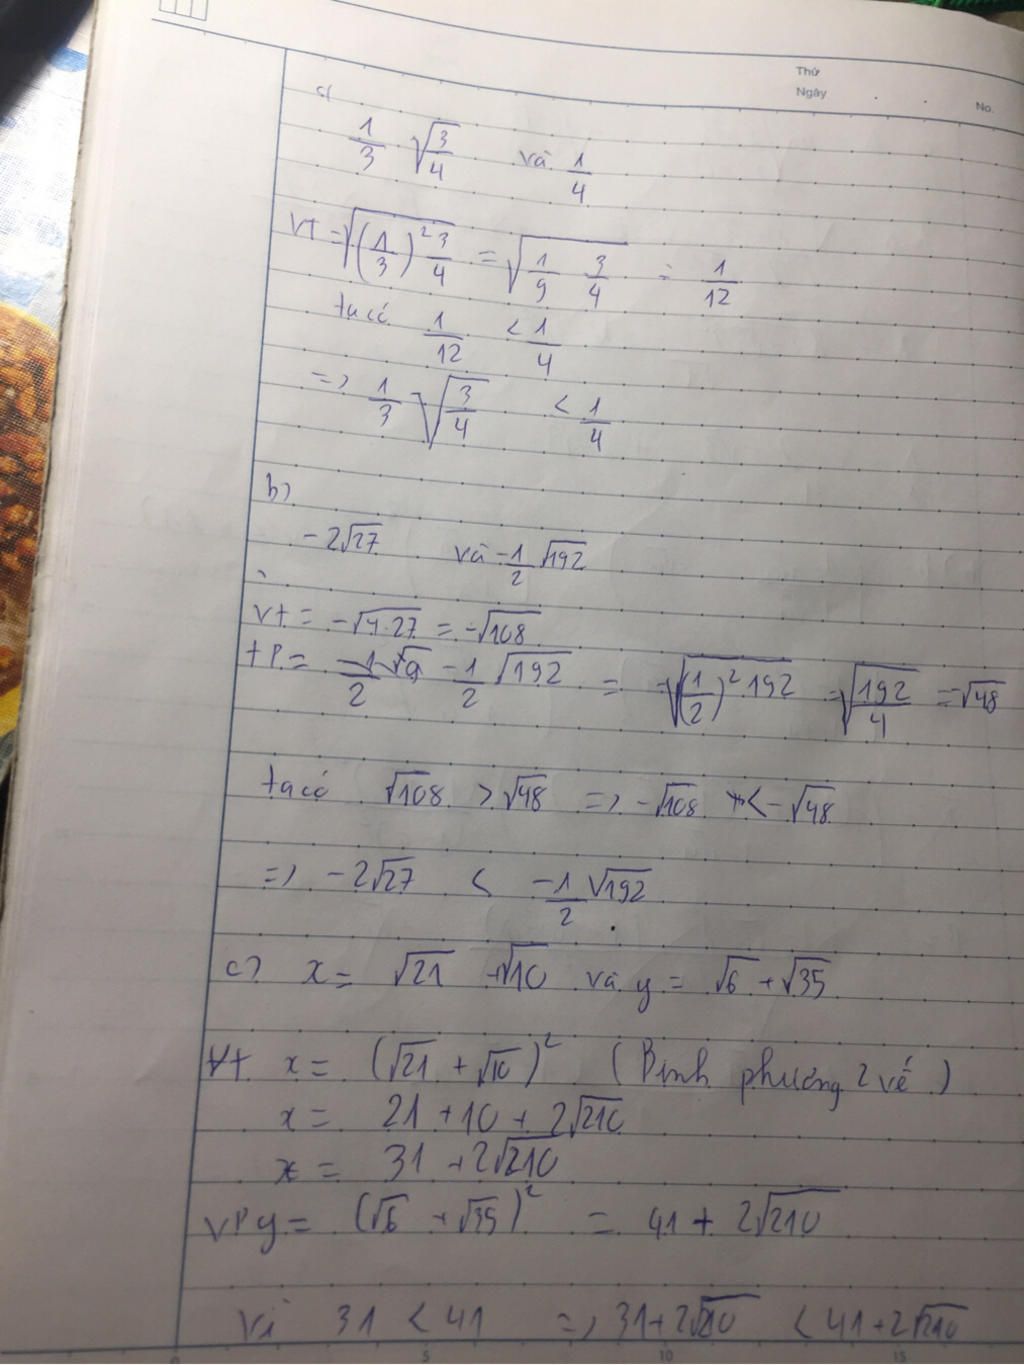 Thứ
Ngày . . No.
a)
1/3 √(3/4) và 1/4
VT = √((1/3)² 3/4) = √(1/9 3/4) = 1/12
ta có 1/12 < 1/4
=> 1/3 √(3/4) < 1/4
b)
-2√27 và -1/2 √192
VT = -√4.27 = -√108
tP = -1/2 √9 -1/2 √192 = -√((1/2)² 192) = √(192/4) = √48
ta có √108 > √48 => -√108 < -√48
=> -2√27 < -1/2 √192
c) x = √21 + √10 và y = √6 + √35
VT x = (√21 + √10)² (Bình phương 2 vế)
x = 21 + 10 + 2√210
x = 31 + 2√210
VP y = (√6 + √35)² = 41 + 2√210
Vì 31 < 41 => 31 + 2√210 < 41 + 2√210
0 5 10 15